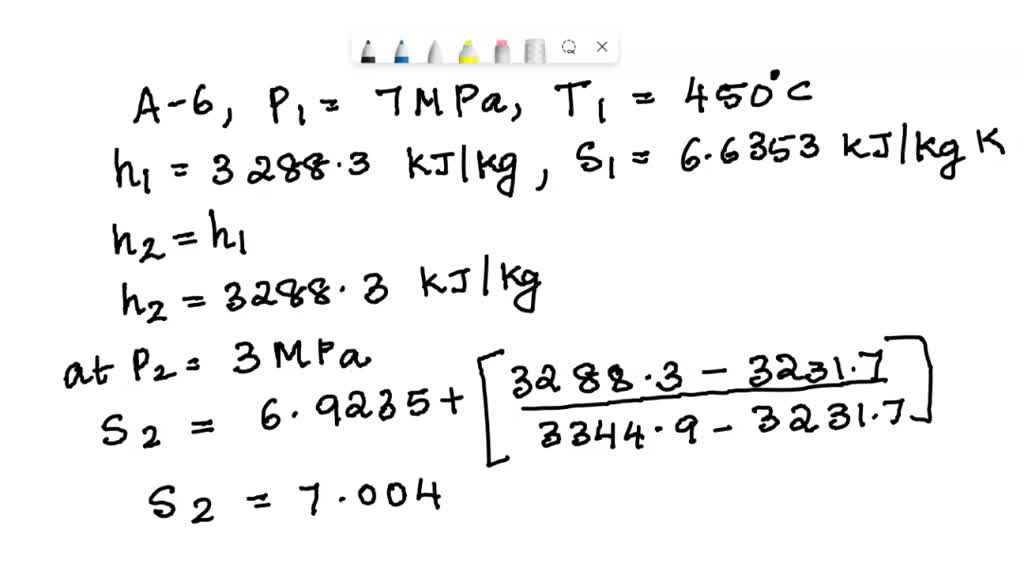 A-6, P1 = 7 MPa, T1 = 450°C
h1 = 3288.3 kJ/kg, S1 = 6.6353 kJ/kg K
h2 = h1
h2 = 3288.3 kJ/kg
at P2 = 3 MPa
S2 = 6.9235 + [(3288.3 - 3231.7) / (3344.9 - 3231.7)]
S2 = 7.004